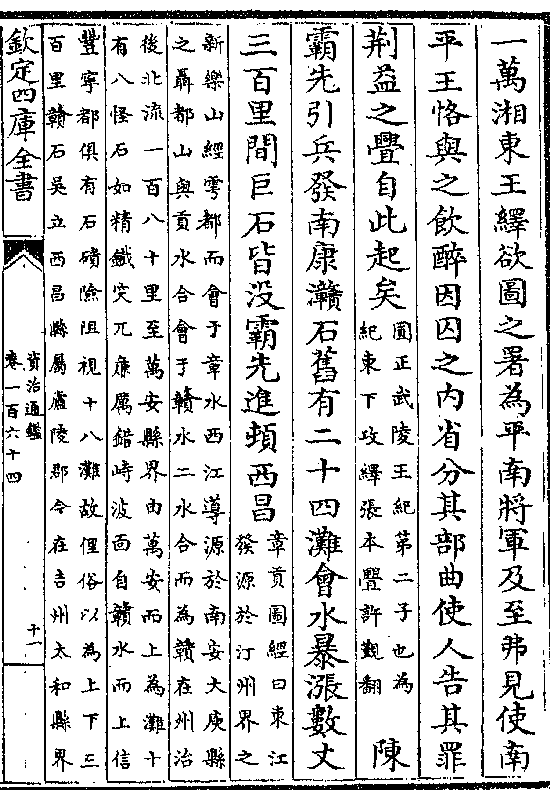 一萬湘東王繹欲圖之署為平南將軍及至弗見使南
平王恪與之飲醉因囚之内省分其部曲使人告其罪
荆益之舋自此起矣
圓正武陵王紀第二子也為
紀東下攻繹張本舋許覲翻
陳
霸先引兵發南康灨石舊有二十四灘會水暴漲數丈
三百里間巨石皆没霸先進頓西昌
章貢圖經曰東江
發源於汀州界之
新樂山經雩都而會于章水西江導源於南安大庾縣
之聶都山與貢水合會于贑水二水合而為贑在州治
後北流一百八十里至萬安縣界由萬安而上為灘十
有八怪石如精鐵突兀亷厲錯峙波面自贑水而上信
豐寧都俱有石磧險阻視十八灘故俚俗以為上下三
百里贑石吴立西昌縣屬廬陵郡今在吉州太和縣界
欽定四庫全書
資治通鑑
卷一百六十四
十一